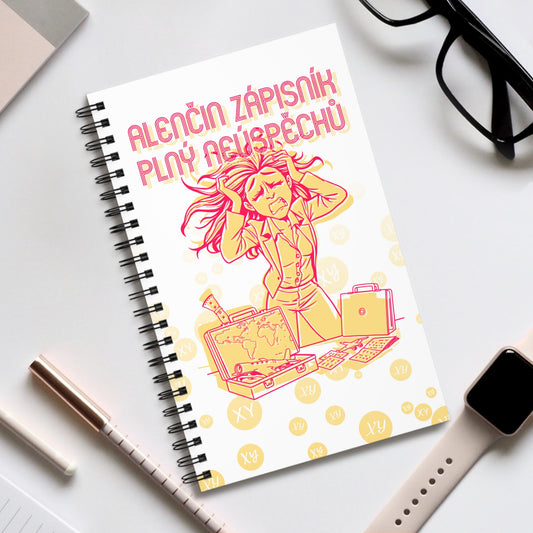 ALENČIN ZÁPISNÍK
PLNÝ NEÚSPĚCHŮ
XY
XY
XY
XY
XY
XY
XY